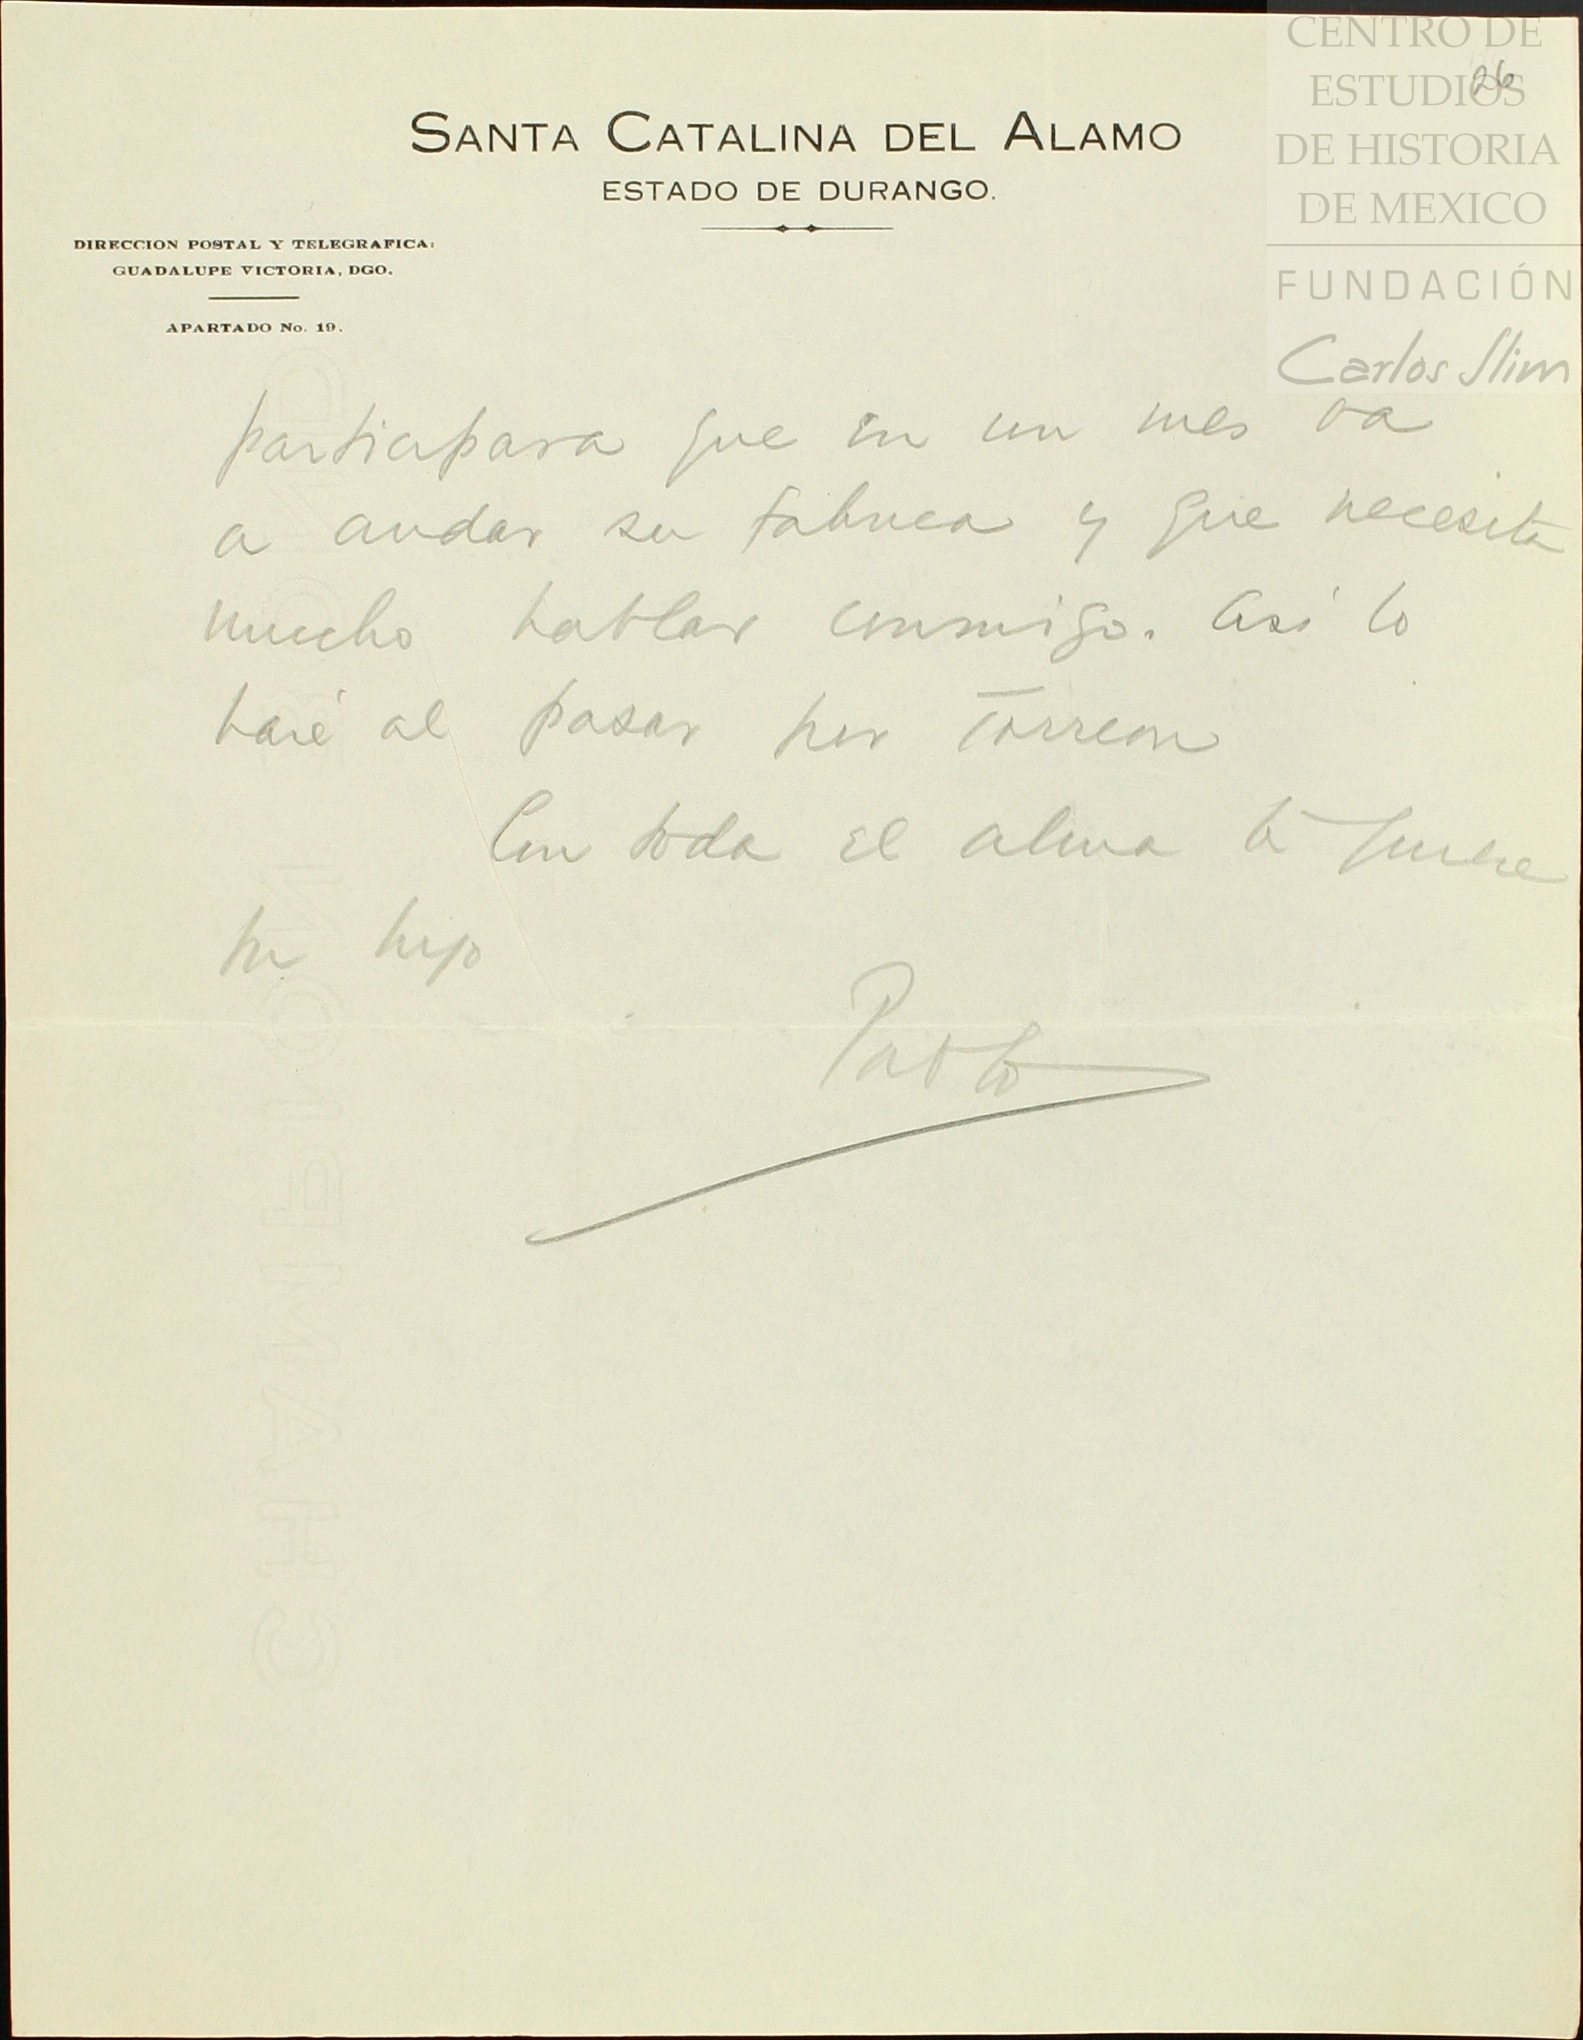 CENTRO DE
ESTUDIOS
DE HISTORIA
DE MEXICO
FUNDACIÓN
Carlos Slim
26
SANTA CATALINA DEL ALAMO
ESTADO DE DURANGO.
DIRECCION POSTAL Y TELEGRAFICA:
GUADALUPE VICTORIA, DGO.
APARTADO No. 19.
participara que en un mes va
a andar su fabrica y que necesita
mucho hablar conmigo. Así lo
haré al pasar por Torreon
Con toda el alma te quiere
tu hijo
Pablo
CHAMPION BOND